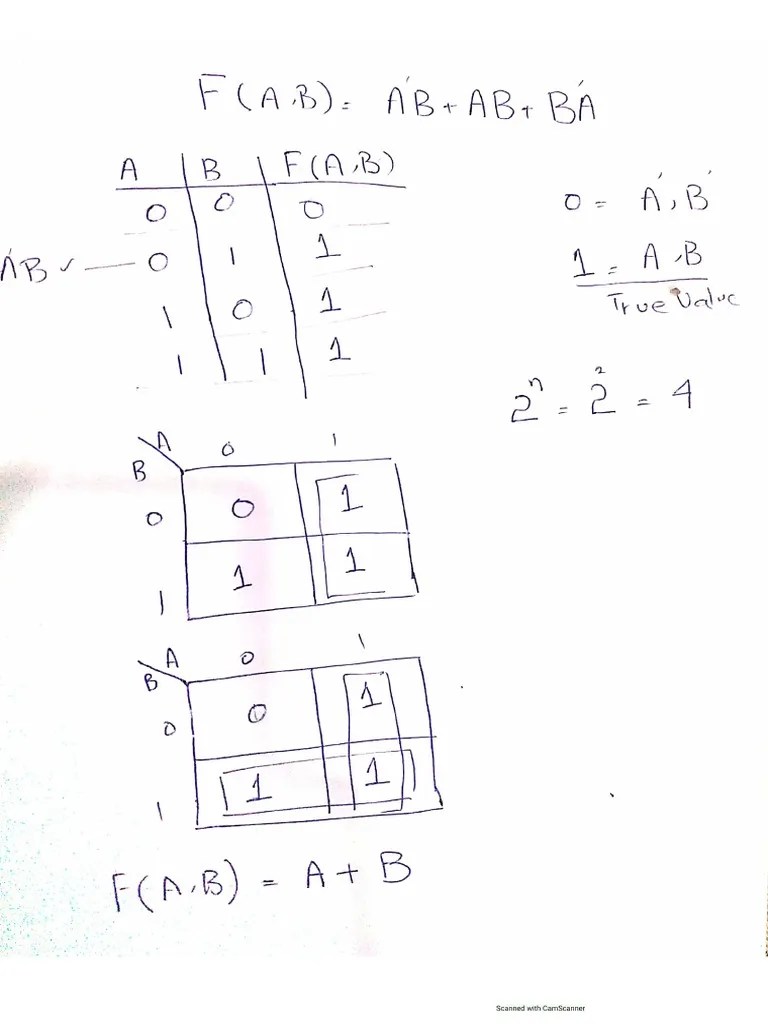 F(A,B) = A'B + AB + BA'
A B F(A,B)
0 0 0
0 = A', B'
A'B ✓ — 0 1 1
1 = A, B
True Value
1 0 1
1 1 1
2ⁿ = 2² = 4
A 0 1
B
0 0 1
1 1 1
A 0 1
B
0 0 1
1 1 1
F(A,B) = A + B
Scanned with CamScanner